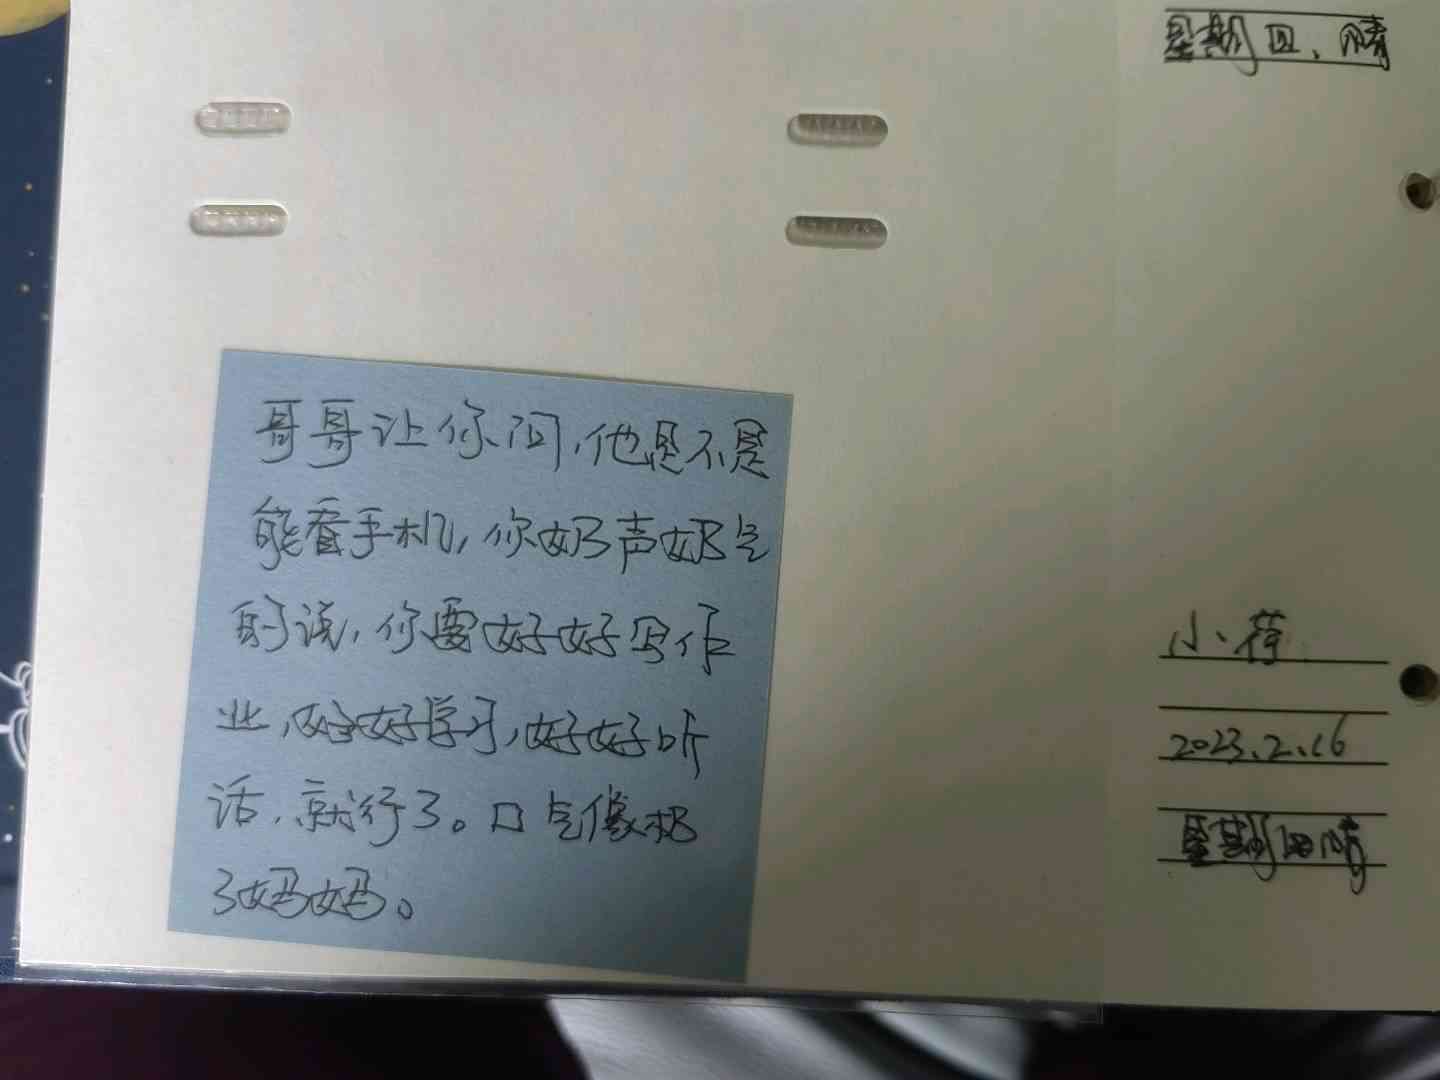 星期四、晴
哥哥让你问,他是不是
能看手机,你奶声奶气
的说,你要好好写作
业,好好学习,好好听
话,就行了。口气像极
了妈妈。
小荷
2023.2.16
星期四晴